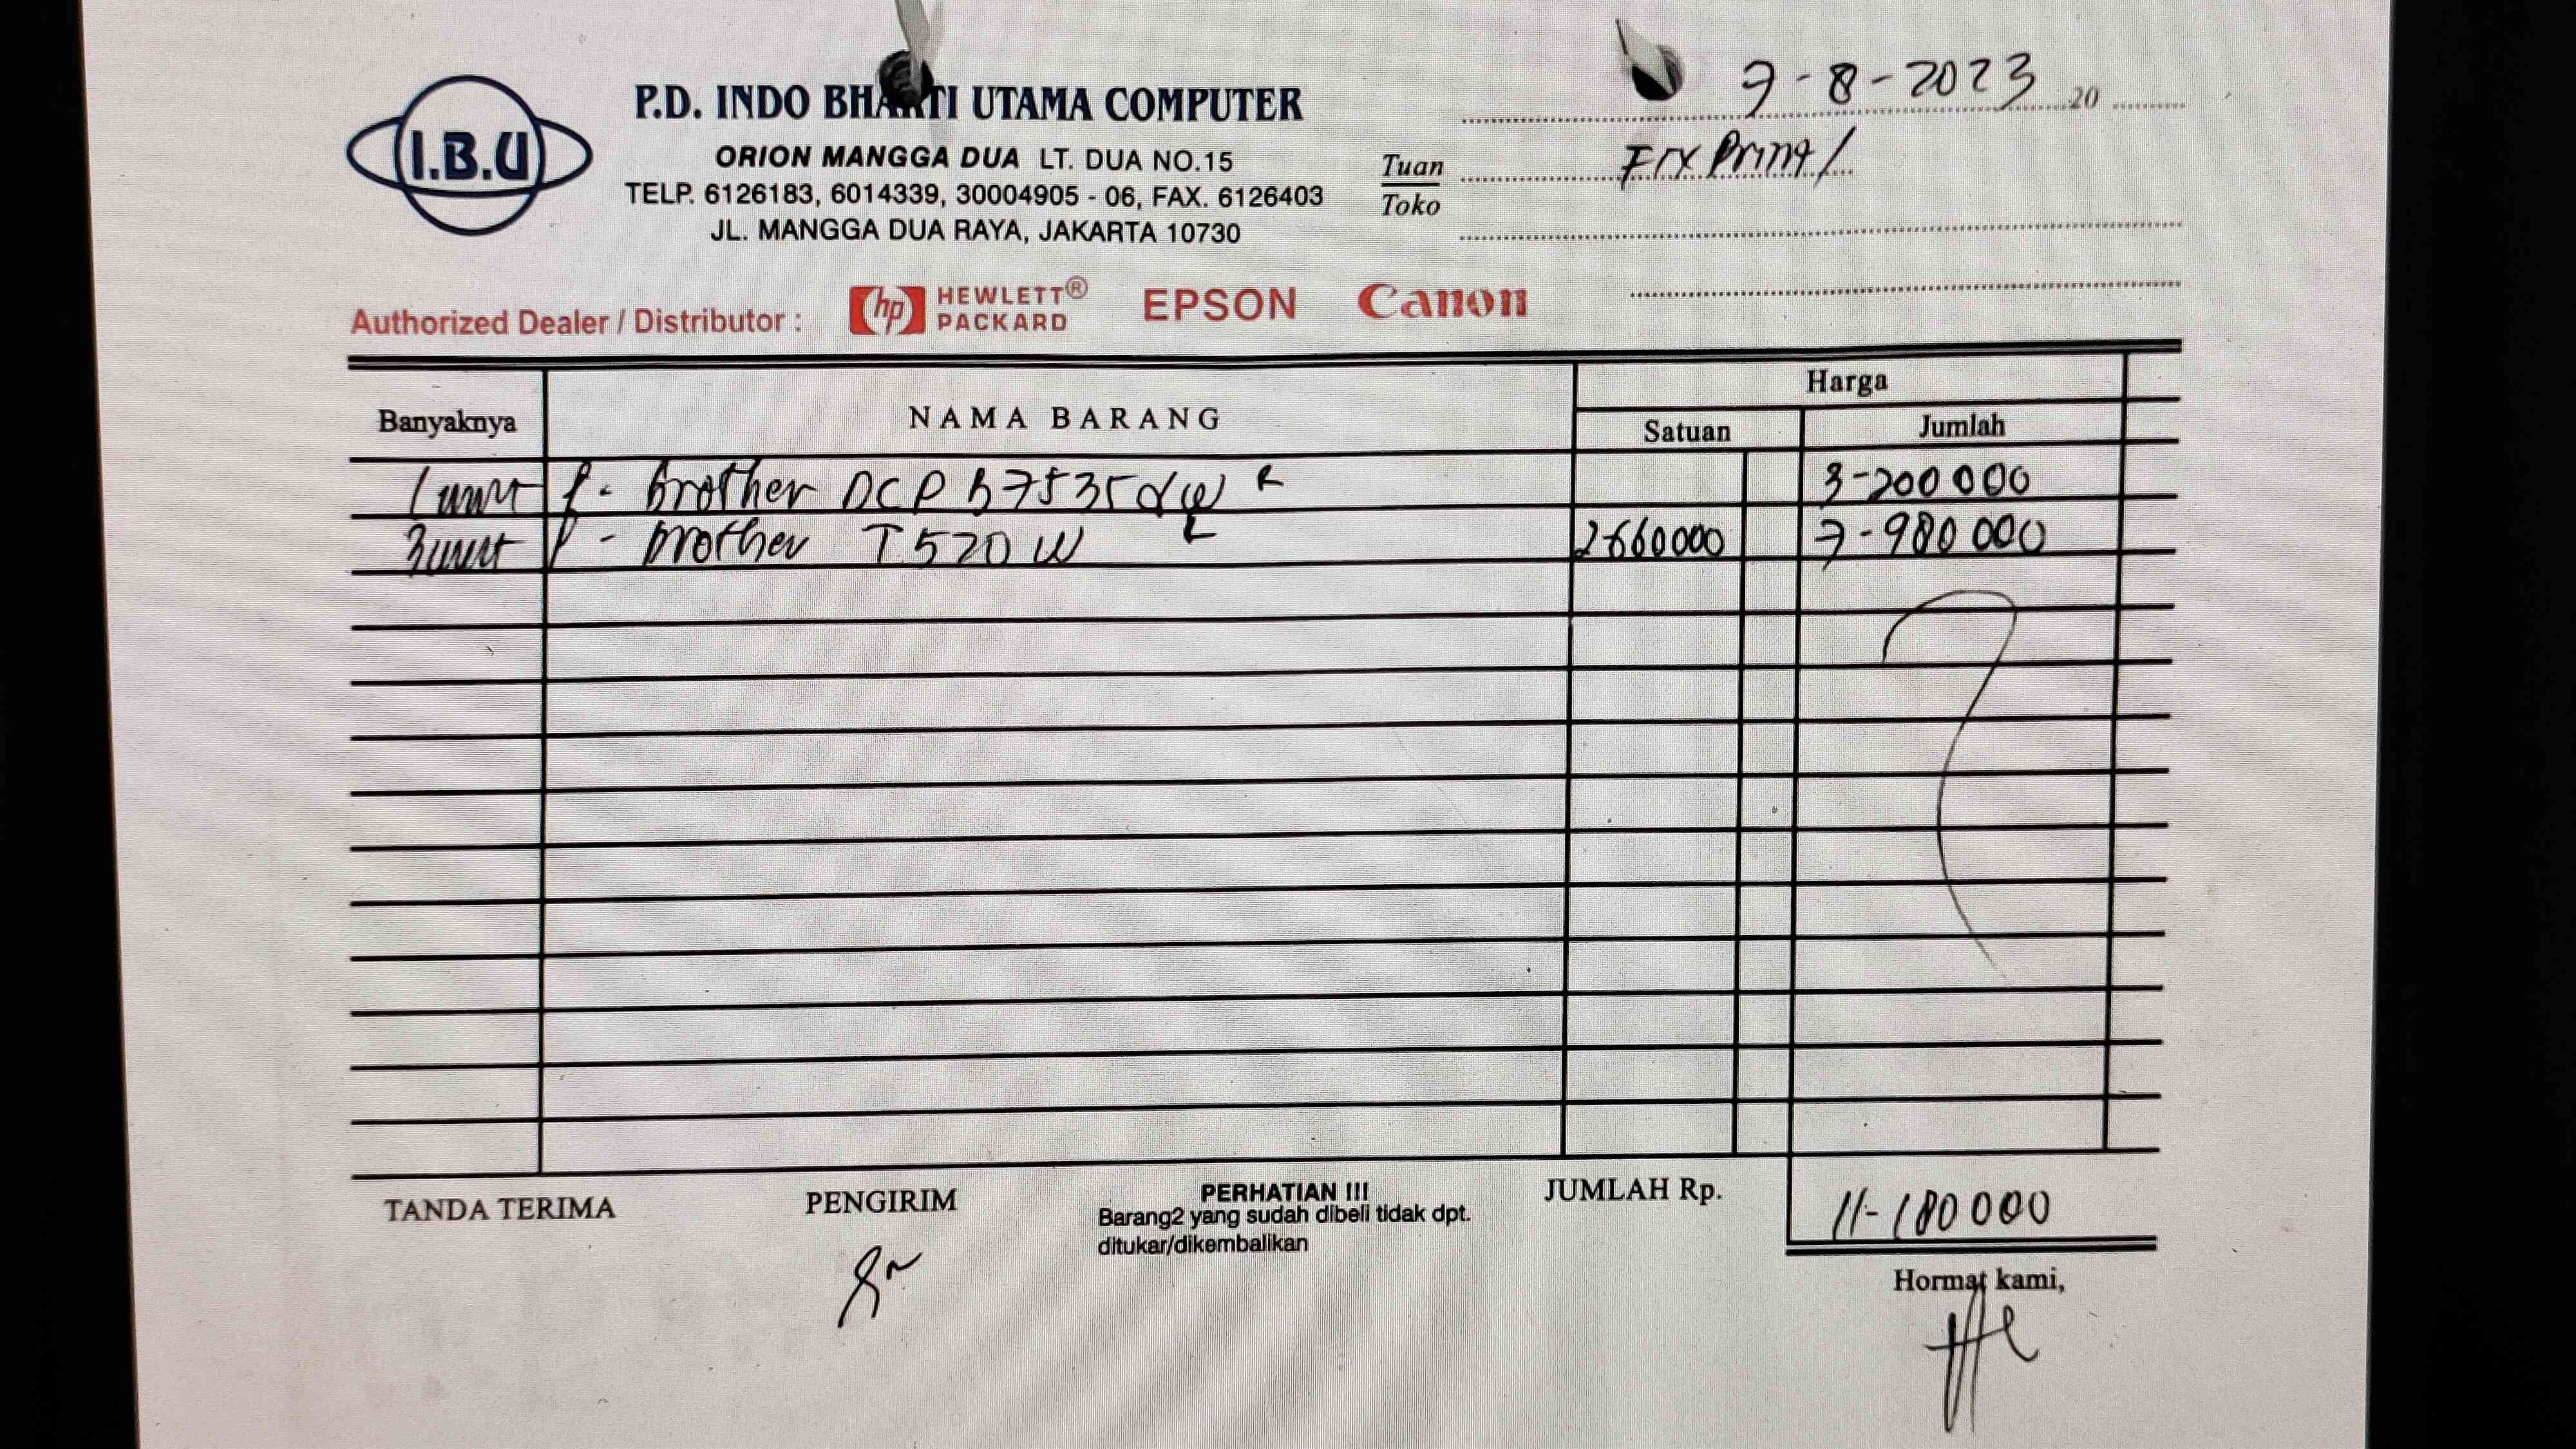 I.B.U
P.D. INDO BHAKTI UTAMA COMPUTER
ORION MANGGA DUA LT. DUA NO.15
TELP. 6126183, 6014339, 30004905 - 06, FAX. 6126403
JL. MANGGA DUA RAYA, JAKARTA 10730
7-8-2023 20
Tuan
Toko
Print
Authorized Dealer / Distributor : hp HEWLETT® PACKARD EPSON Canon
Banyaknya NAMA BARANG Harga
Satuan Jumlah
1 unit - brother DCP B7535dw 3-200 000
3 unit - brother T520 W 2660000 7-980 000
TANDA TERIMA PENGIRIM PERHATIAN !!! JUMLAH Rp. 11-180 000
Barang2 yang sudah dibeli tidak dpt.
ditukar/dikembalikan
Hormat kami,